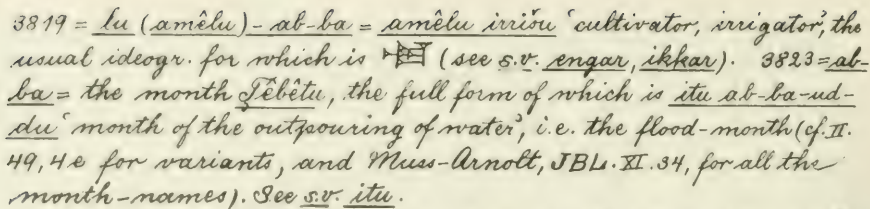 3819 = lu (amêlu) - ab-ba = amêlu irrišu 'cultivator, irrigator', the
usual ideogr. for which is (see s.v. engar, ikkar). 3823 = ab-
ba = the month Ṭêbêtu, the full form of which is itu ab-ba-ud-
du 'month of the outpouring of water', i.e. the flood-month (cf. II.
49, 4e for variants, and Muss-Arnolt, JBL. XI. 34, for all the
month-names). See s.v. itu.